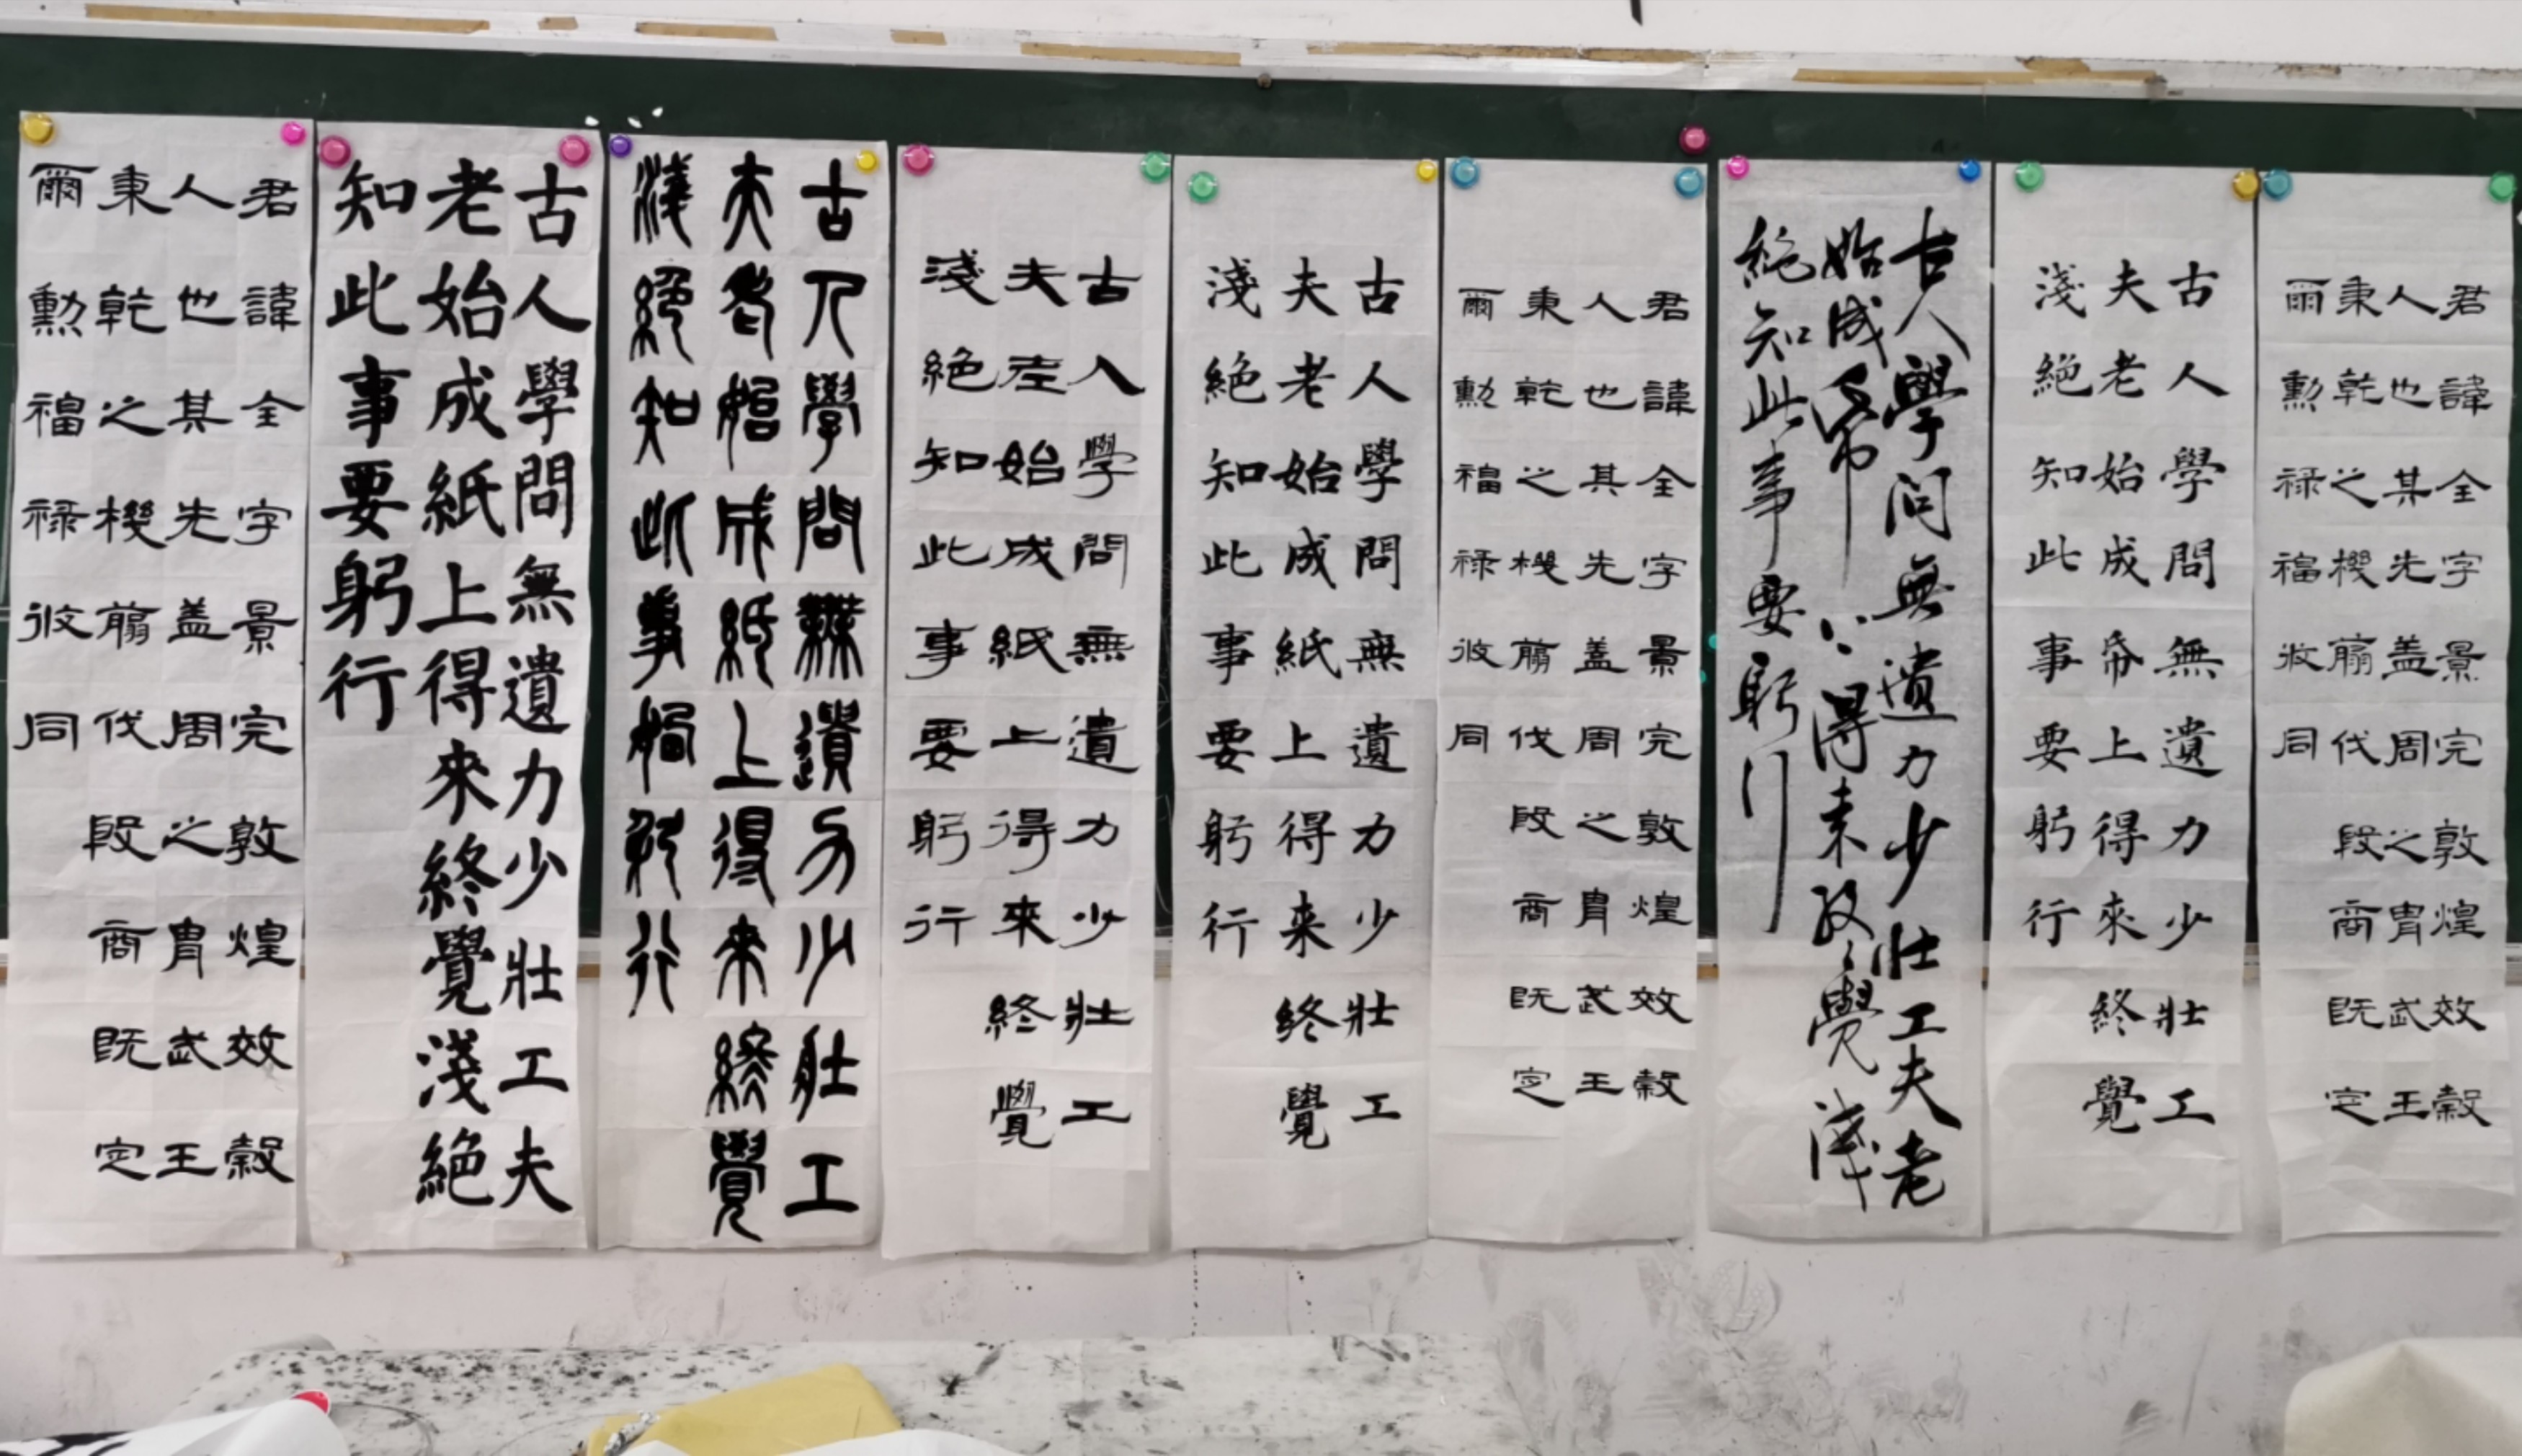 君諱全字景完敦煌效穀
人也其先盖周之胄武王
秉乾之機翦伐殷商既定
爾勳禄福攸同
古人學問無遺力少壯工
夫老始成帋上得來終覺
淺絕知此事要躬行
古人學问無遺力少壯工夫老
始成帋上得来終覺淺
絕知此事要躬行
君諱全字景完敦煌效穀
人也其先盖周之胄武王
秉乾之機翦伐殷商既定
爾勳福禄攸同
古人學問無遺力少壯工
夫老始成紙上得来終覺
淺絕知此事要躬行
古人學問無遺力少壯工
夫老始成紙上得來終覺
淺絕知此事要躬行
古人學問無遺力少壯工
夫老始成紙上得來終覺
淺絕知此事要躬行
古人學問無遺力少壯工夫
老始成紙上得來終覺淺絕
知此事要躬行
君諱全字景完敦煌效穀
人也其先盖周之胄武王
秉乾之機翦伐殷商既定
爾勳福禄攸同